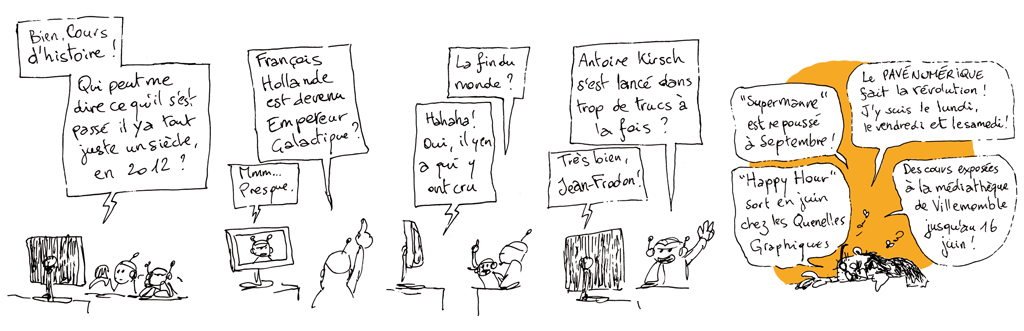 Bien, Cours
d'histoire !
Qui peut me
dire ce qu'il s'est
passé il y a tout
juste un siècle,
en 2012 ?
François
Hollande
est devenu
Empereur
Galactique ?
Mmm...
Presque.
La fin du
monde ?
Hahaha !
Oui, il y en
a qui y
ont cru
Antoine Kirsch
s'est lancé dans
trop de trucs à
la fois ?
Très bien,
Jean-Frodon !
"Supermanne"
est repoussé
à Septembre !
Le PAVÉ NUMÉRIQUE
fait la révolution !
J'y suis le lundi,
le vendredi et le samedi !
"Happy Hour"
sort en juin
chez les Quenelles
Graphiques
Des cours exposées
à la médiathèque
de Villemomble
jusqu'au 16
juin !